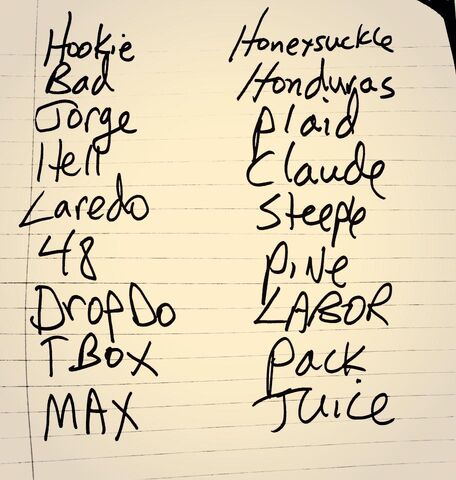 Hookie Honeysuckle
Bad Honduras
Jorge Plaid
Hell Claude
Laredo Steeple
48 PINE
DropDo LABOR
TBOX Pack
MAX Juice